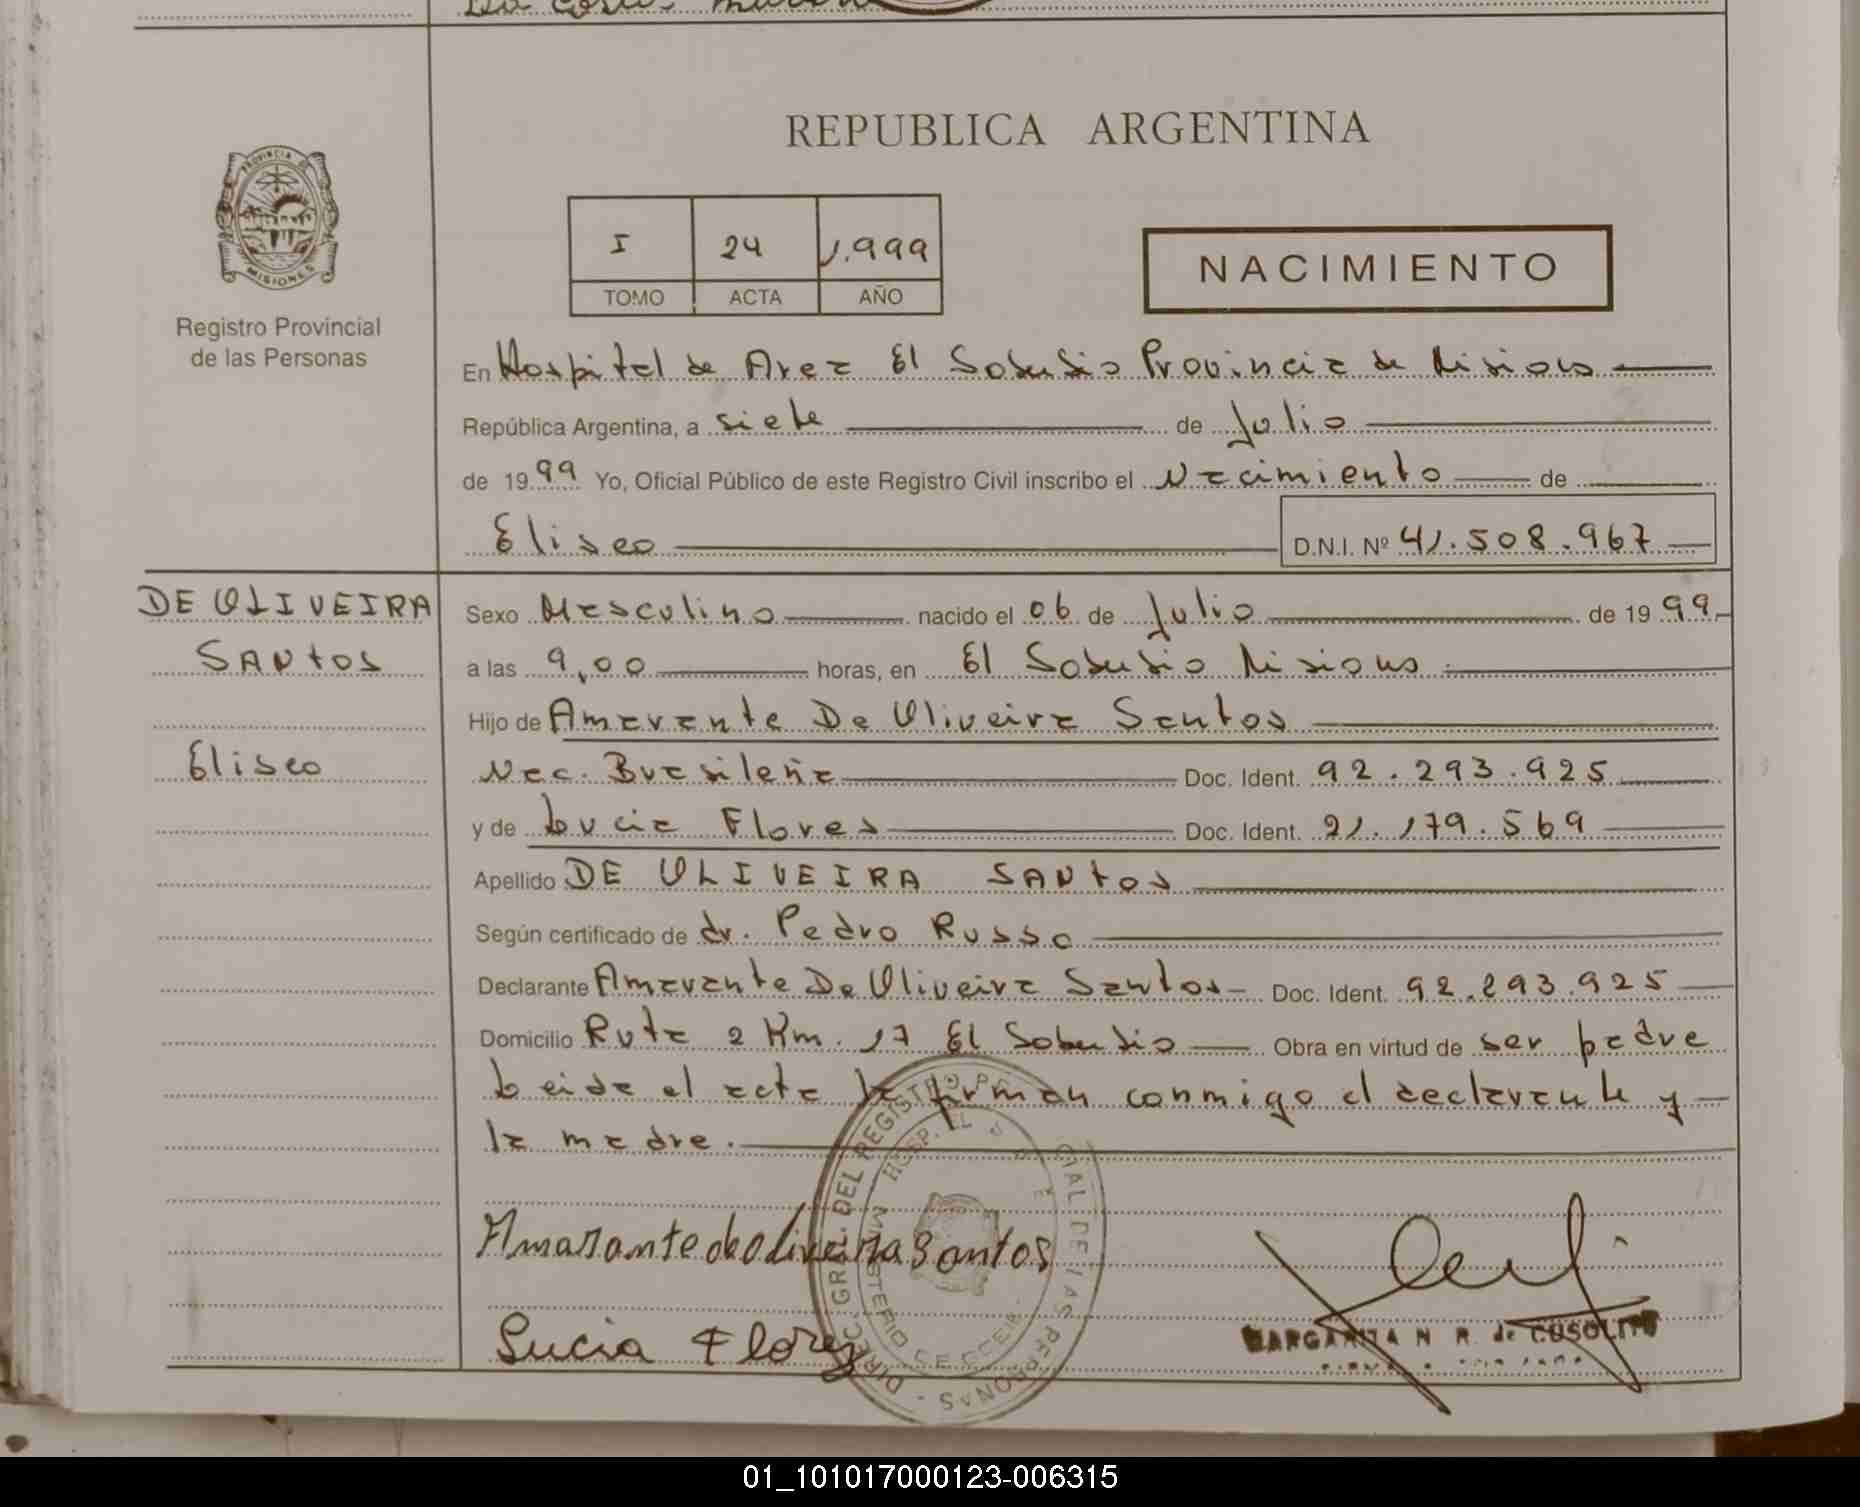 REPUBLICA ARGENTINA
I 24 1.999
TOMO ACTA AÑO
NACIMIENTO
PROVINCIA DE
MISIONES
Registro Provincial
de las Personas
En Hospital de Area El Soberbio Provincia de Misiones
República Argentina, a siete de Julio
de 1999 Yo, Oficial Público de este Registro Civil inscribo el Nacimiento de
Eliseo D.N.I. Nº 41.508.967
DE OLIVEIRA
SANTOS
Eliseo
Sexo Masculino nacido el 06 de Julio de 1999
a las 9,00 horas, en El Soberbio Misiones
Hijo de Amarante De Oliveira Santos
Nac. Brasileña Doc. Ident. 92.293.925
y de Lucia Flores Doc. Ident. 21.179.569
Apellido DE OLIVEIRA SANTOS
Según certificado de dr. Pedro Russo
Declarante Amarante De Oliveira Santos Doc. Ident. 92.293.925
Domicilio Ruta 2 Km. 17 El Soberbio Obra en virtud de ser padre
Leida el acta la firman conmigo el declarante y
la madre.
Amarante de Oliveira Santos
Lucia Flores
MARGARITA N. R. de CUSOLITO
01_101017000123-006315